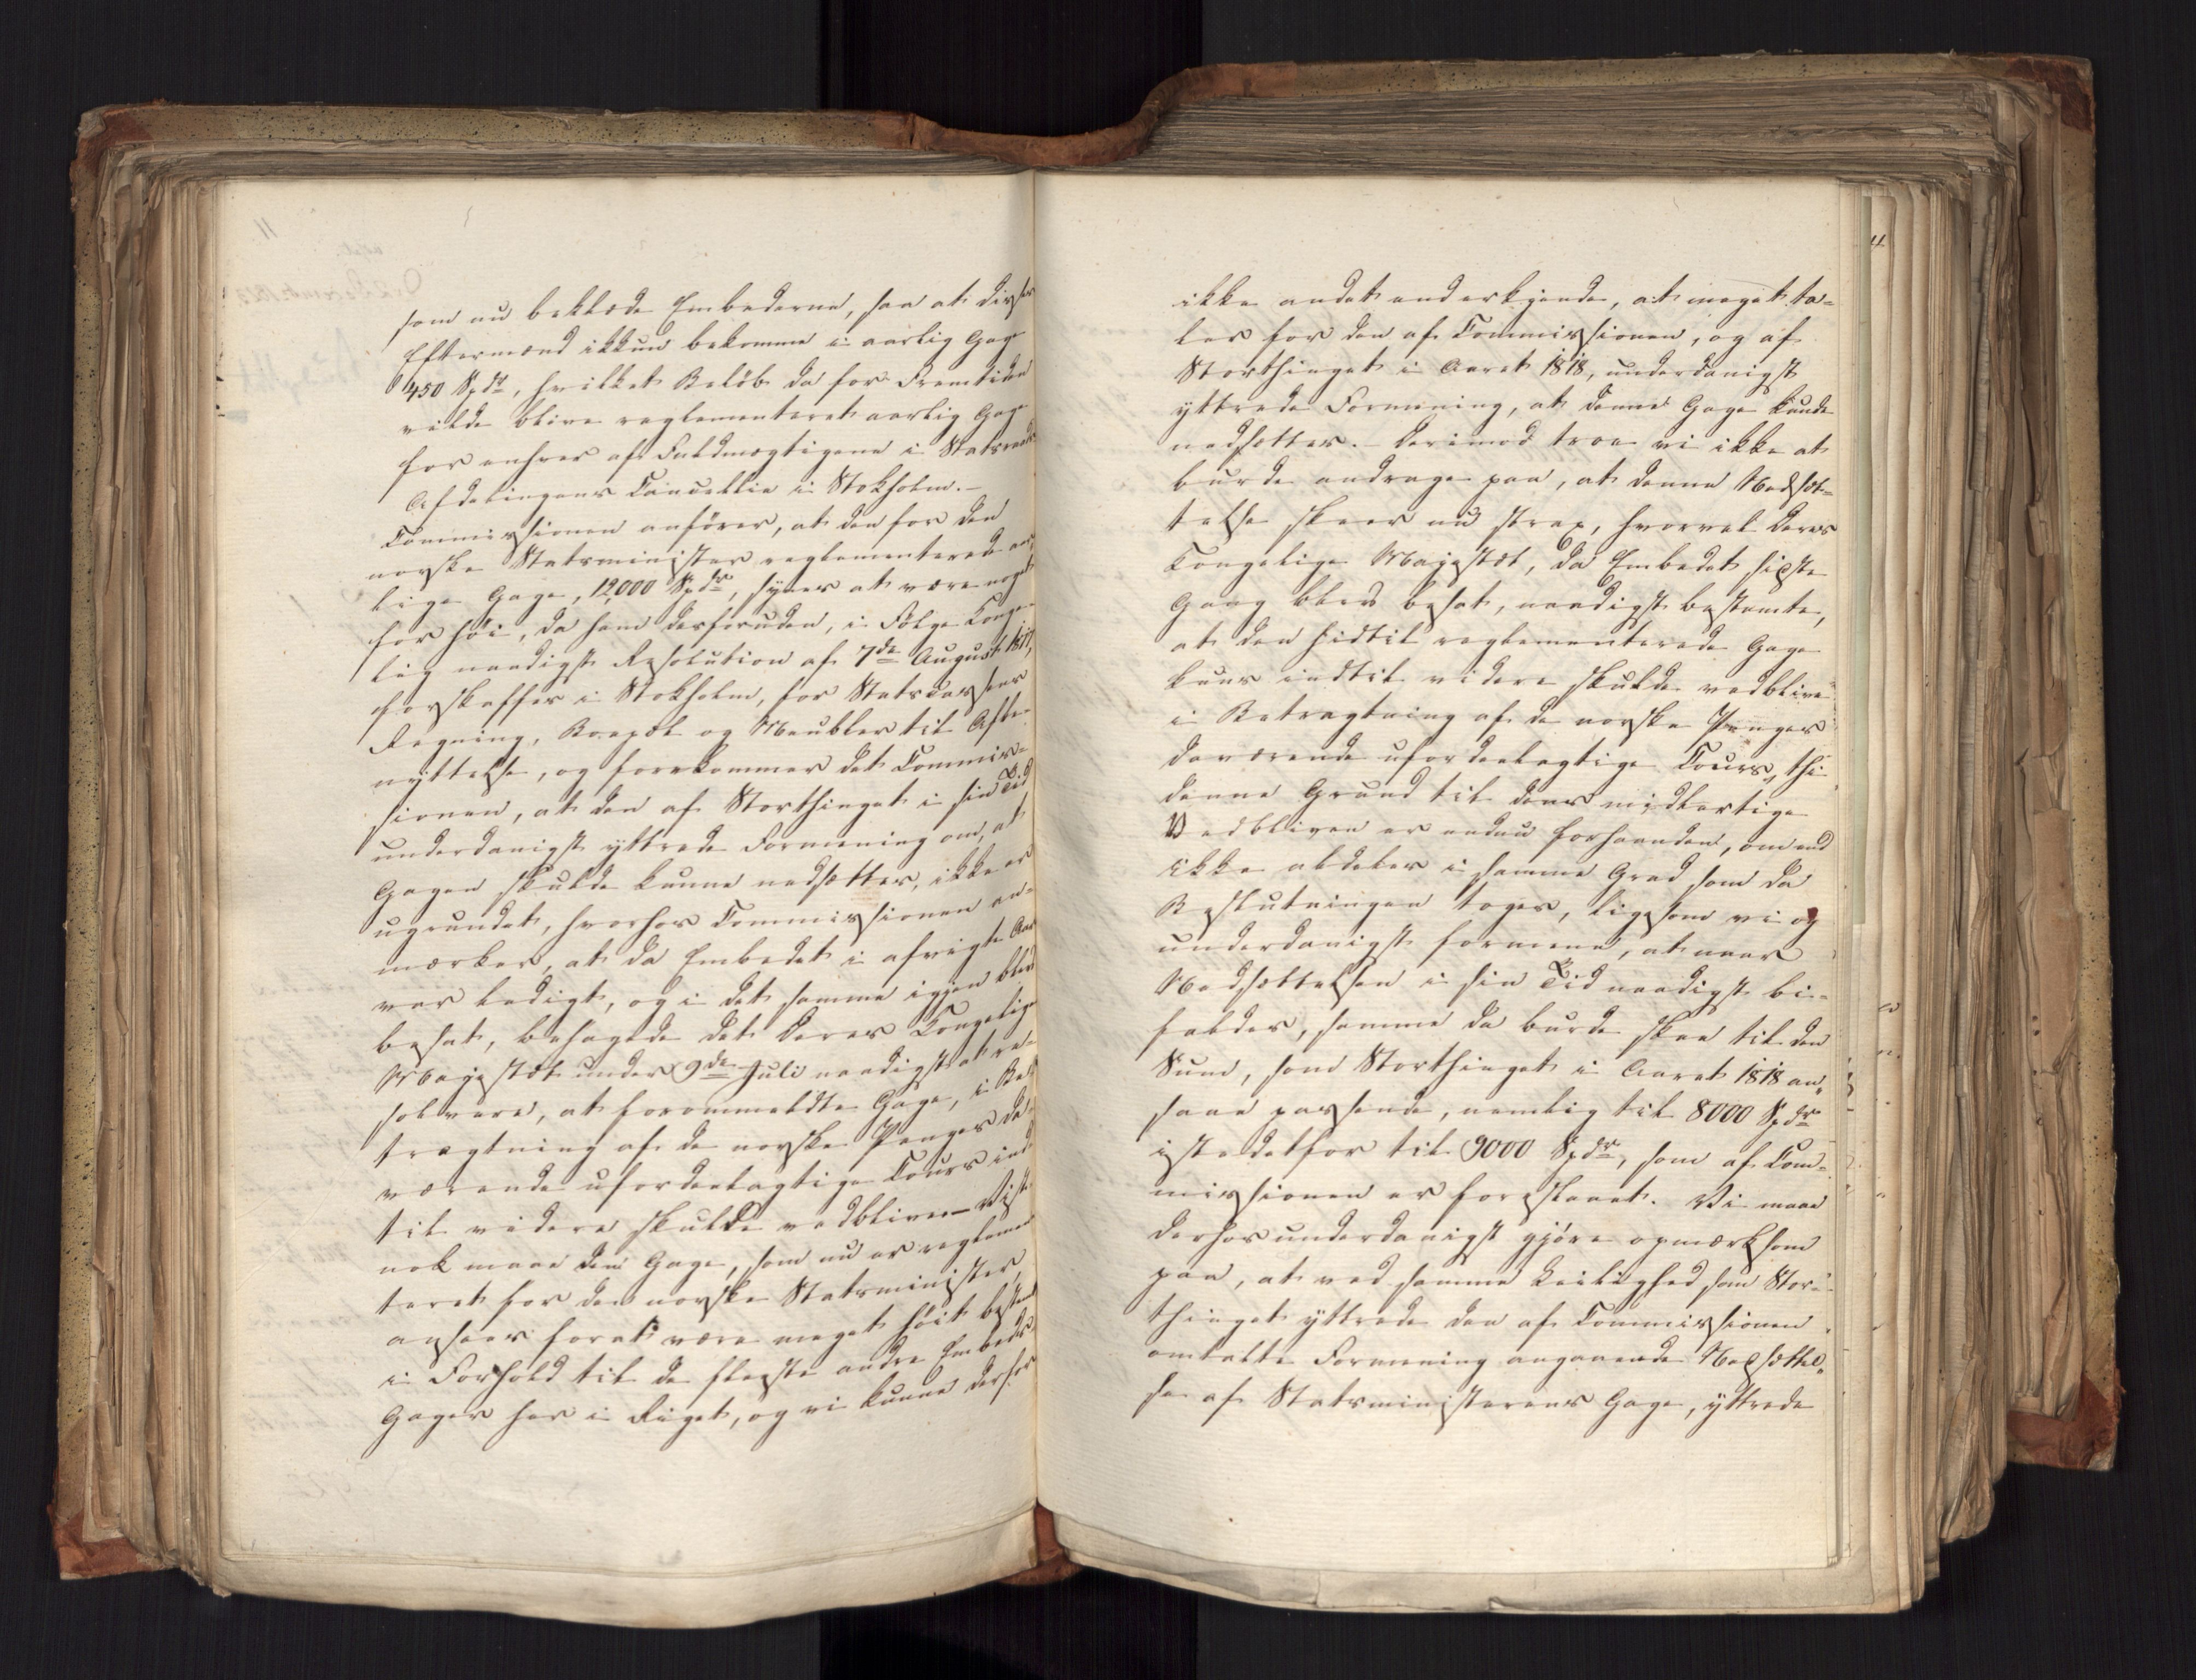 som nu beklæde Embederne, saa at disses
Eftermænd ikkun bekomme i aarlig Gage
450 Spdr, hvilket Beløb da for Fremtiden
vilde blive reglementeret aarlig Gage
for enhver af Fuldmægtigene i Statsraads
Afdelingens Cancellie i Stokholm.-
Commissionen anfører, at den for den
norske Statsminister reglementerede aar-
lige Gage, 12,000 Spdr, synes at være noget
for høi, da ham desforuden, i Følge Konge-
lig naadigst Resolution af 7de August 1817,
forskaffes i Stokholm, for Statscassens
Regning, Boepæl og Meubler til Afbe-
nyttelse, og forekommer det Commis-
sionen, at den af Storthinget i sin Tid
underdanigst yttrede Formening om, at
Gagen skulde kunne nedsættes, ikke er
ugrundet, hvorhos Commissionen an-
mærker, at da Embedet i afvigte Aar
var ledigt, og i det samme igjen blev
besat, behagede det Deres Kongelige
Majestæt under 9de Juli naadigst at re-
solvere, at forommeldte Gage, i Be-
tragtning af de norske Penges da-
værende ufordeelagtige Cours ind-
til videre skulde vedblive - Vist
nok maae den Gage, som nu er reglemen-
teret for den norske Statsminister,
ansees forat være meget høit bestemt
i Forhold til de fleeste andre Embeds
Gager her i Riget, og vi kunne derfor
ikke andet end erkjende, at meget ta-
ler for den af Commissionen, og af
Storthinget i Aaret 1818, underdanigst
yttrede Formening, at denne Gage kunde
nedsættes. - Derimod troe vi ikke at
burde andrage paa, at denne Nedsæt-
telse skeer nu strax, hvorvel Deres
Kongelige Majestæt, da Embedet sidste
Gang blev besat, naadigst bestemte,
at den hidtil reglementerede Gage
kuns indtil videre skulde vedblive
i Betragtning af de norske Penges
daværende ufordeelagtige Cours, thi
denne Grund til dens midlertige
Vedbliven er endnu forhaanden, om end
ikke aldeles i samme Grad som da
Beslutningen toges, ligesom vi og
underdanigst formene, at naar
Nedsættelsen i sin Tid naadigst bi-
faldes, samme da burde skee til den
Sum, som Storthinget i Aaret 1818 an-
saae passende, nemlig til 8000 Spdr
istedetfor til 9000 Spdr, som af Com-
missionen er foreslaaet. Vi maae
derhos underdanigst gjøre opmærksom
paa, at ved samme Leilighed, som Stor-
thinget yttrede den af Commissionen
omtalte Formening angaaende Nedsættel-
se af Statsministerens Gage, yttrede